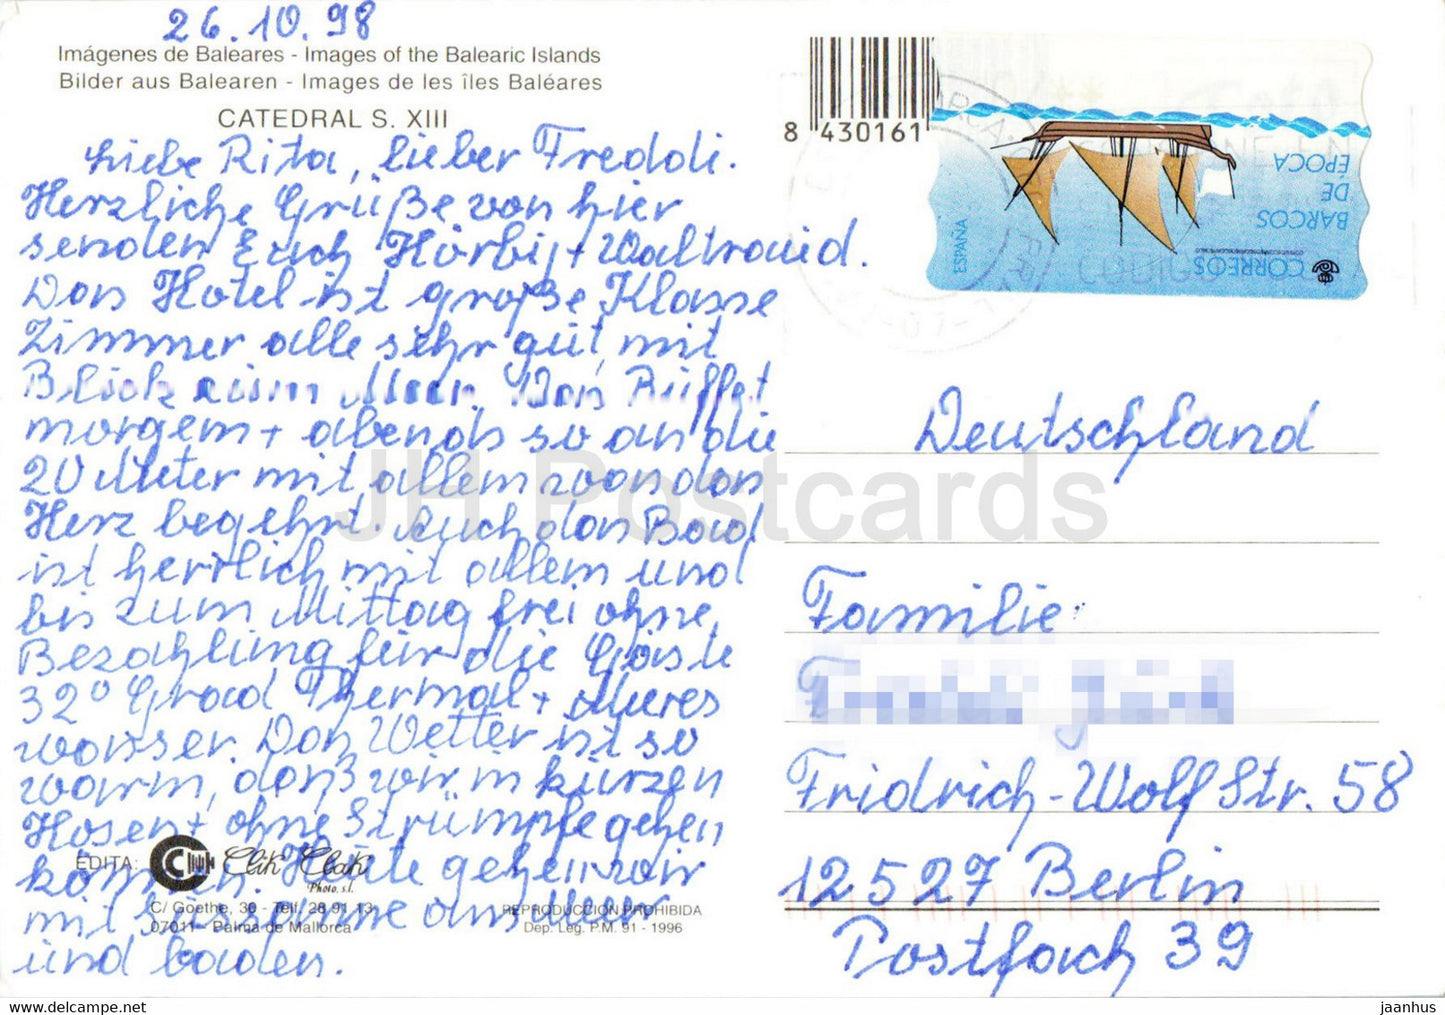 26.10.98
Imágenes de Baleares - Images of the Balearic Islands
Bilder aus Balearen - Images de les îles Baléares
CATEDRAL S. XIII
Liebe Rita, lieber Freddi.
Herzliche Grüße von hier
senden Euch Horbi + Waltraud.
Das Hotel ist große Klasse
Zimmer alle sehr gut, mit
Blick zum Meer. Das Büffet
morgem + abends so an die
20 Meter mit allem was das
Herz begehrt. Auch das Bad
ist herrlich mit allem und
bis zum Mittag frei ohne
Bezahlung für die Gäste
32° Grad Thermal + Meeres
wasser. Das Wetter ist so
warm, daß wir in kurzen
Hosen + ohne Strümpfe gehen
können. Heute gehen wir
mit am Meer
und baden.
EDITA: Clik Clak
Photo, s.l.
C/ Goethe, 30 - Telf. 28 91 13
07011 - Palma de Mallorca
REPRODUCCION PROHIBIDA
Dep. Leg. P.M. 91 - 1996
8 430161
CORREOS
BARCOS
DE
ÉPOCA
ESPAÑA
Deutschland
Familie
Fridrich-Wolf Str. 58
12527 Berlin
Postfach 39
JH Postcards
https://www.hippostcard.com/store/jaanhus